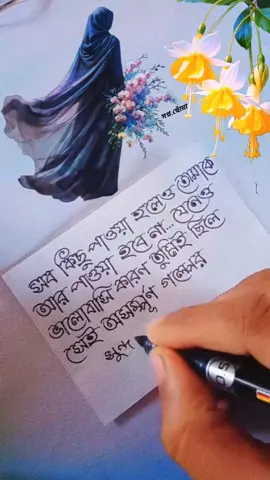 সব কিছু পাওয়া হলেও তোমাকে
আর পাওয়া হবে না... যেনেও
ভালোবাসি কারণ তুমিই ছিলে
সেই অসম্পূর্ণ গল্পের
সুন্দ